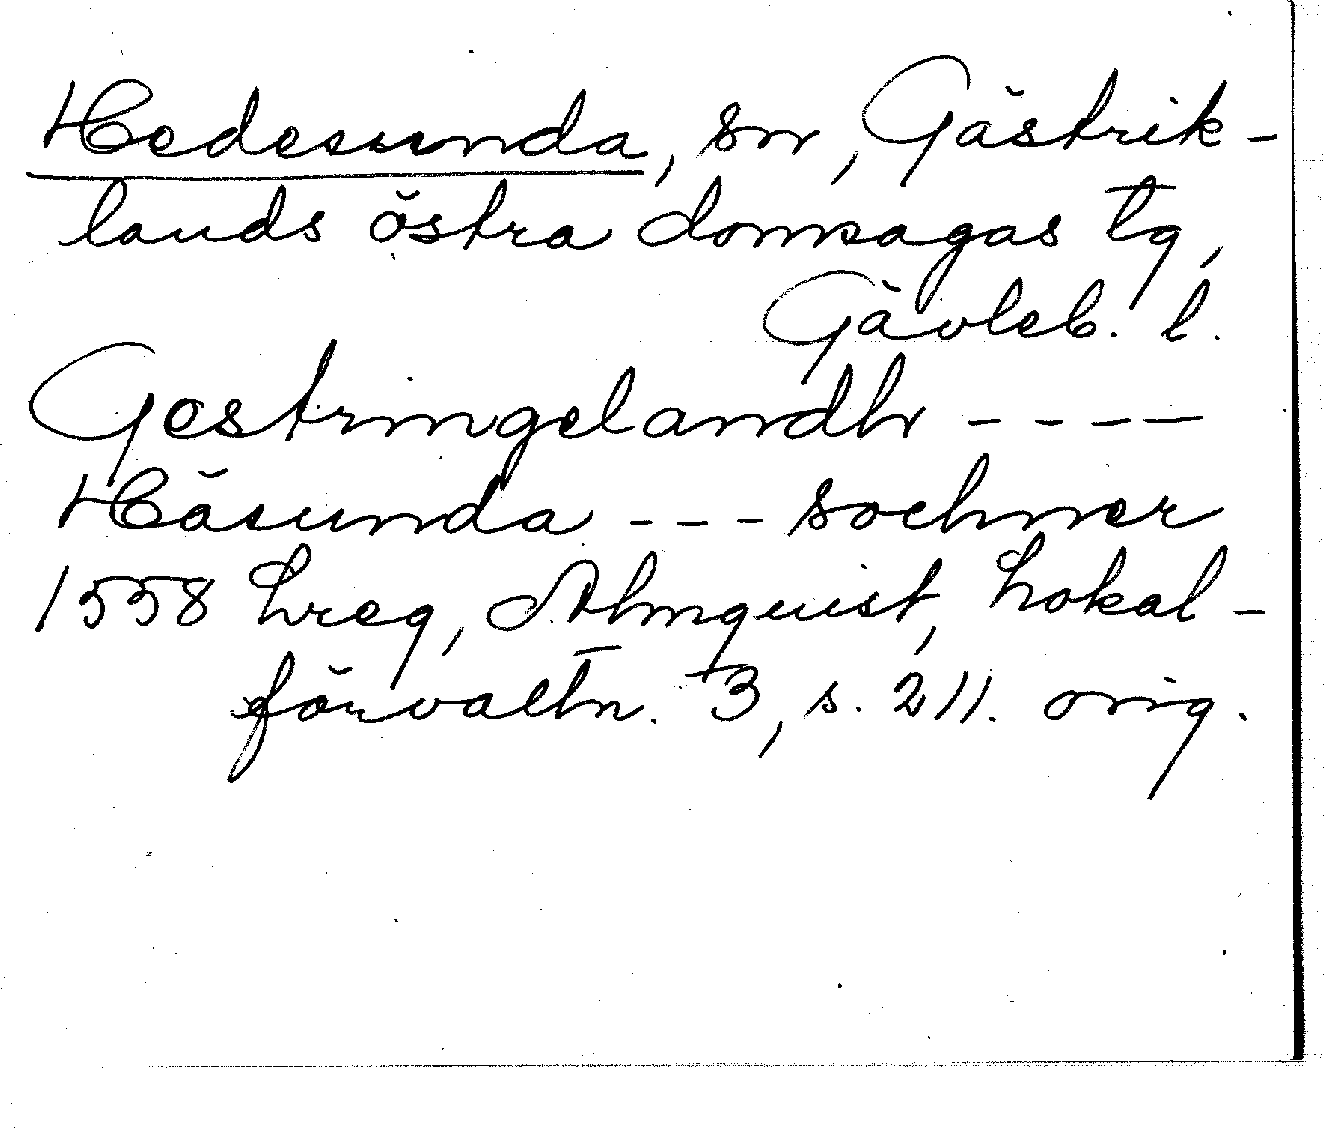 Hedesunda, sn, Gästrik-
lands östra domsagas tg,
Gävleb. l.
Gestringelandh ----
Häsunda --- sochner
1558 Lreg, Almquist, Lokal-
förvaltn. 3, s. 211. orig.